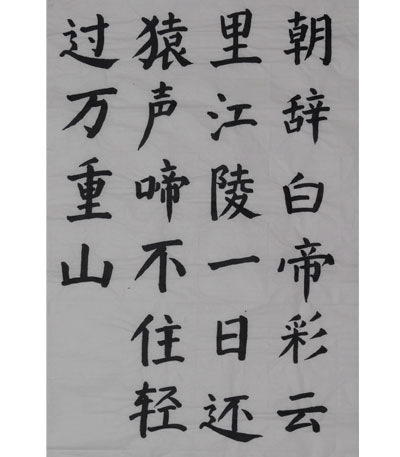 朝辞白帝彩云
里江陵一日还
猿声啼不住轻
过万重山